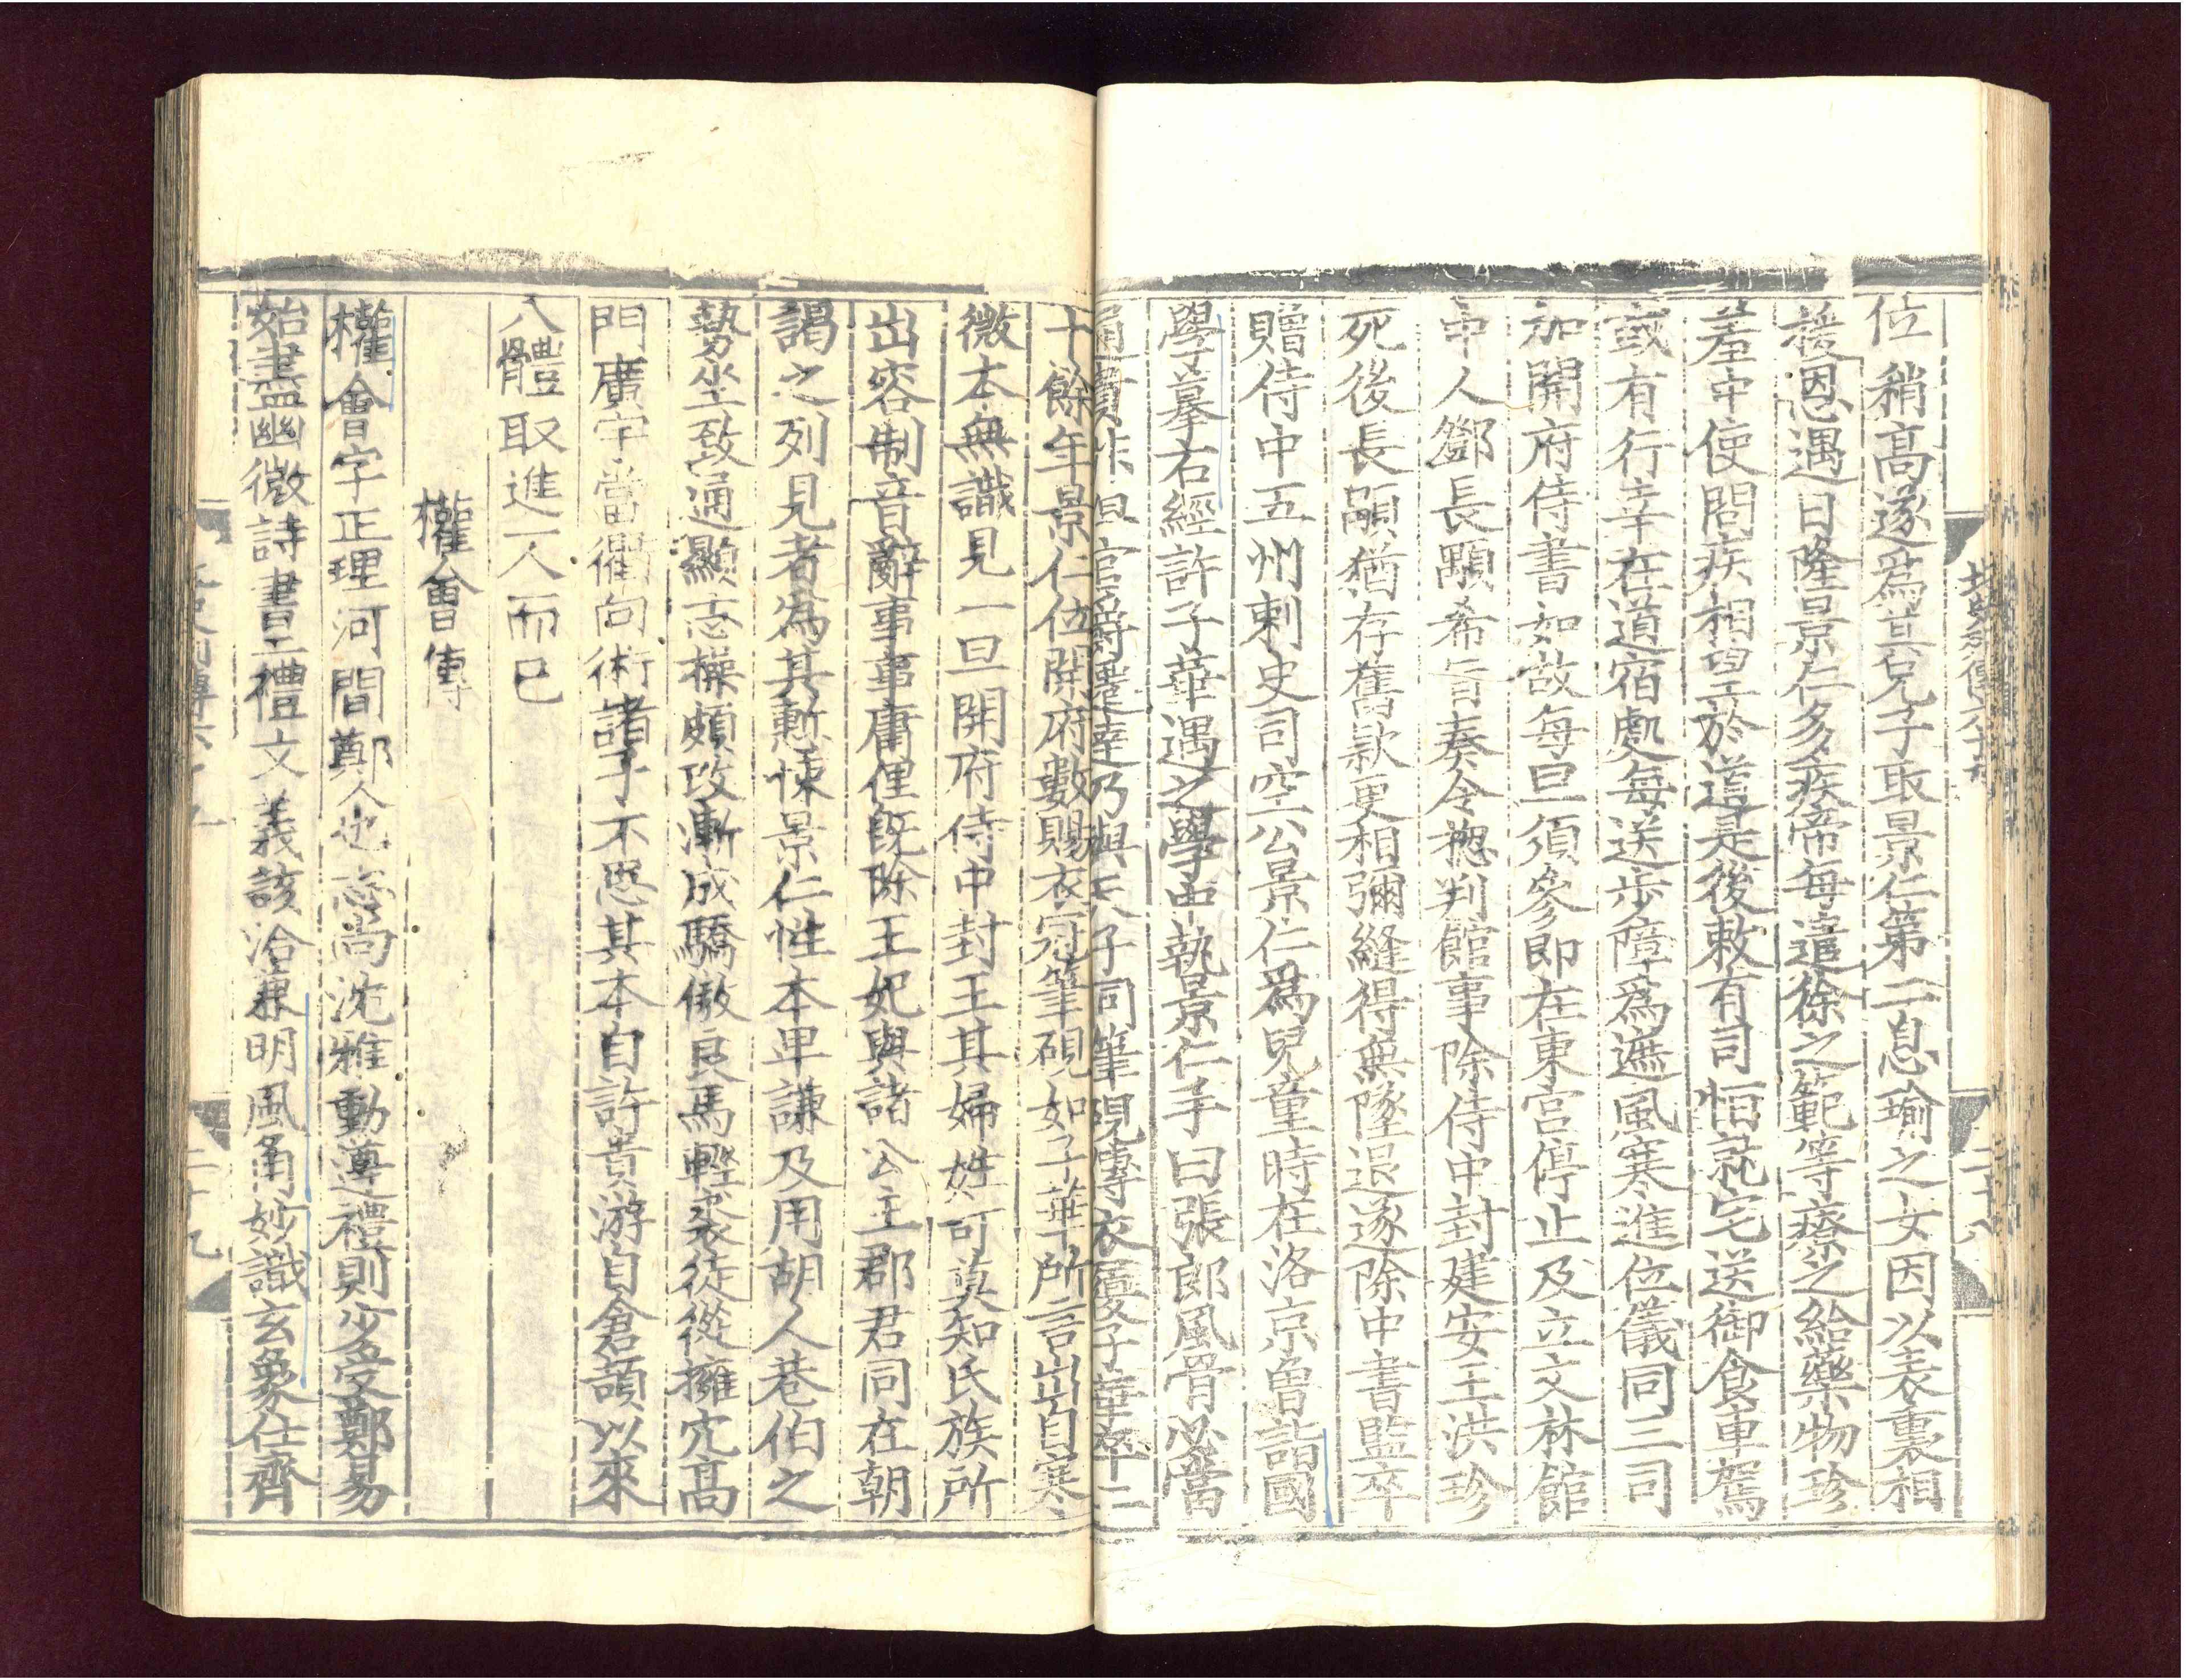 北史列傳六十九
二十八
位稍高遂爲其兄子取景仁第二息瑜之女因以表裏相
援恩遇日隆景仁多疾帝每遣徐之範等療之給藥物珍
羞中使問疾相望於道是後敕有司恒就宅送御食車駕
或有行幸在道宿處每送步障爲遮風寒進位儀同三司
加開府侍書如故每旦須參即在東宮停止及立文林館
中人鄧長顒希旨奏令揔判館事除侍中封建安王洪珍
死後長顒猶存舊款更相彌縫得無墜退遂除中書監卒
贈侍中五州刺史司空公景仁爲兒童時在洛京曾詣國
學摹石經許子華遇之學中執景仁手曰張郎風骨必當
通貴非但官爵遷達乃與天子同筆硯傳衣履子華卒二
十餘年景仁位開府數賜衣冠筆硯如子華所言出自寒
微本無識見一旦開府侍中封王其婦姓可莫知氏族所
出容制音辭事事庸俚既除王妃與諸公主郡君同在朝
謁之列見者為其慙悚景仁性本卑謙及用胡人巷伯之
勢坐致通顯志操頗改漸成驕傲良馬輕裘徒從擁冗高
門廣宇當衢向術諸子不思其本自許貴游自倉頡以來
八體取進一人而已
權會傳
權會字正理河間鄚人也志尚沈雅動遵禮則少受鄭易
妙盡幽微詩書三禮文義該洽兼明風角妙識玄象仕齊
北史列傳六十九
二十九